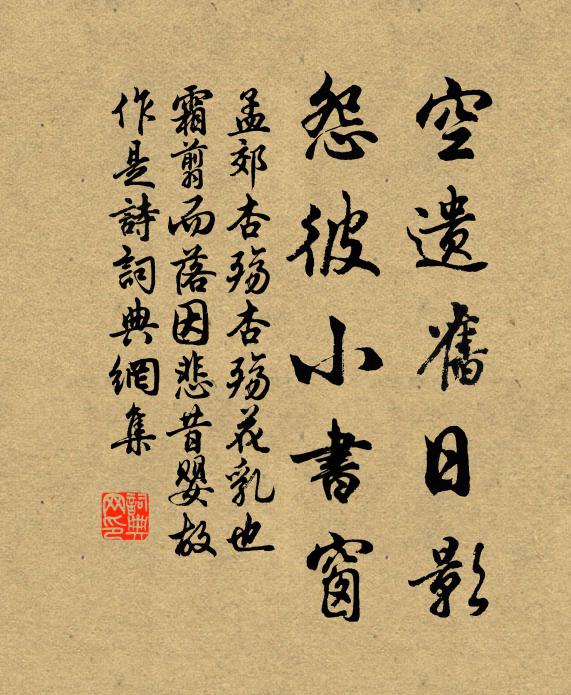 空遺舊日影
怨彼小書窗
孟郊杏殤杏殤花乳也
霜翦而落因悲昔嬰故
作是詩詞典網集
詞典
网印